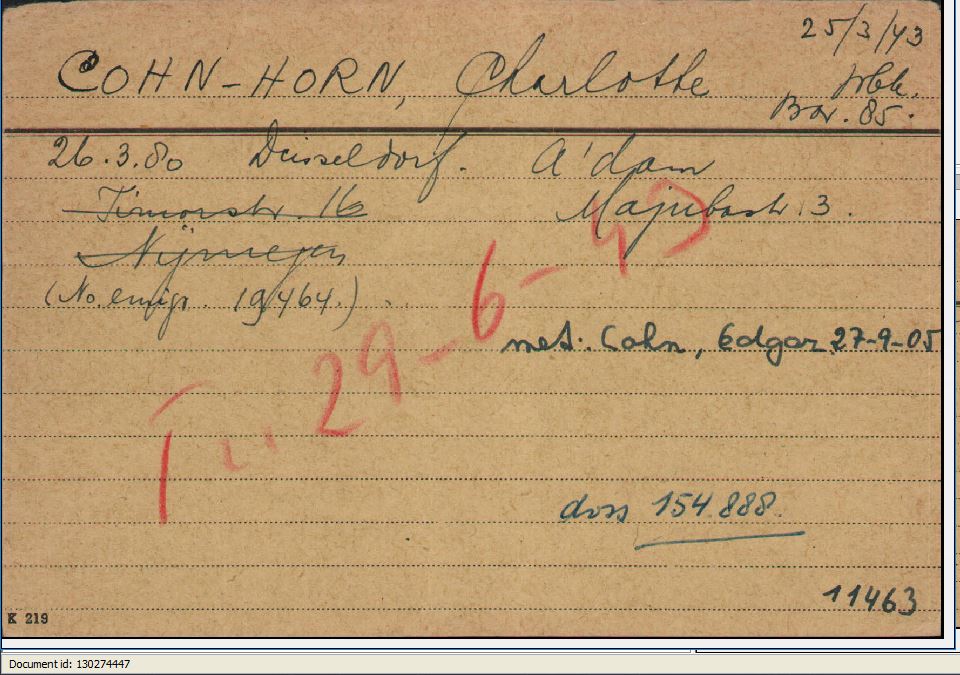 25/3/43
COHN-HORN, Charlotte
Wbk.
Bar. 85.
26.3.80 Düsseldorf. A'dam
Timorstr. 16 Majubastr. 3.
Nijmegen
(No. emigr. 19464.)
met. Cohn, Edgar 27-9-05
T... 29-6-43
doss 154.888.
11463
K 219
Document id: 130274447